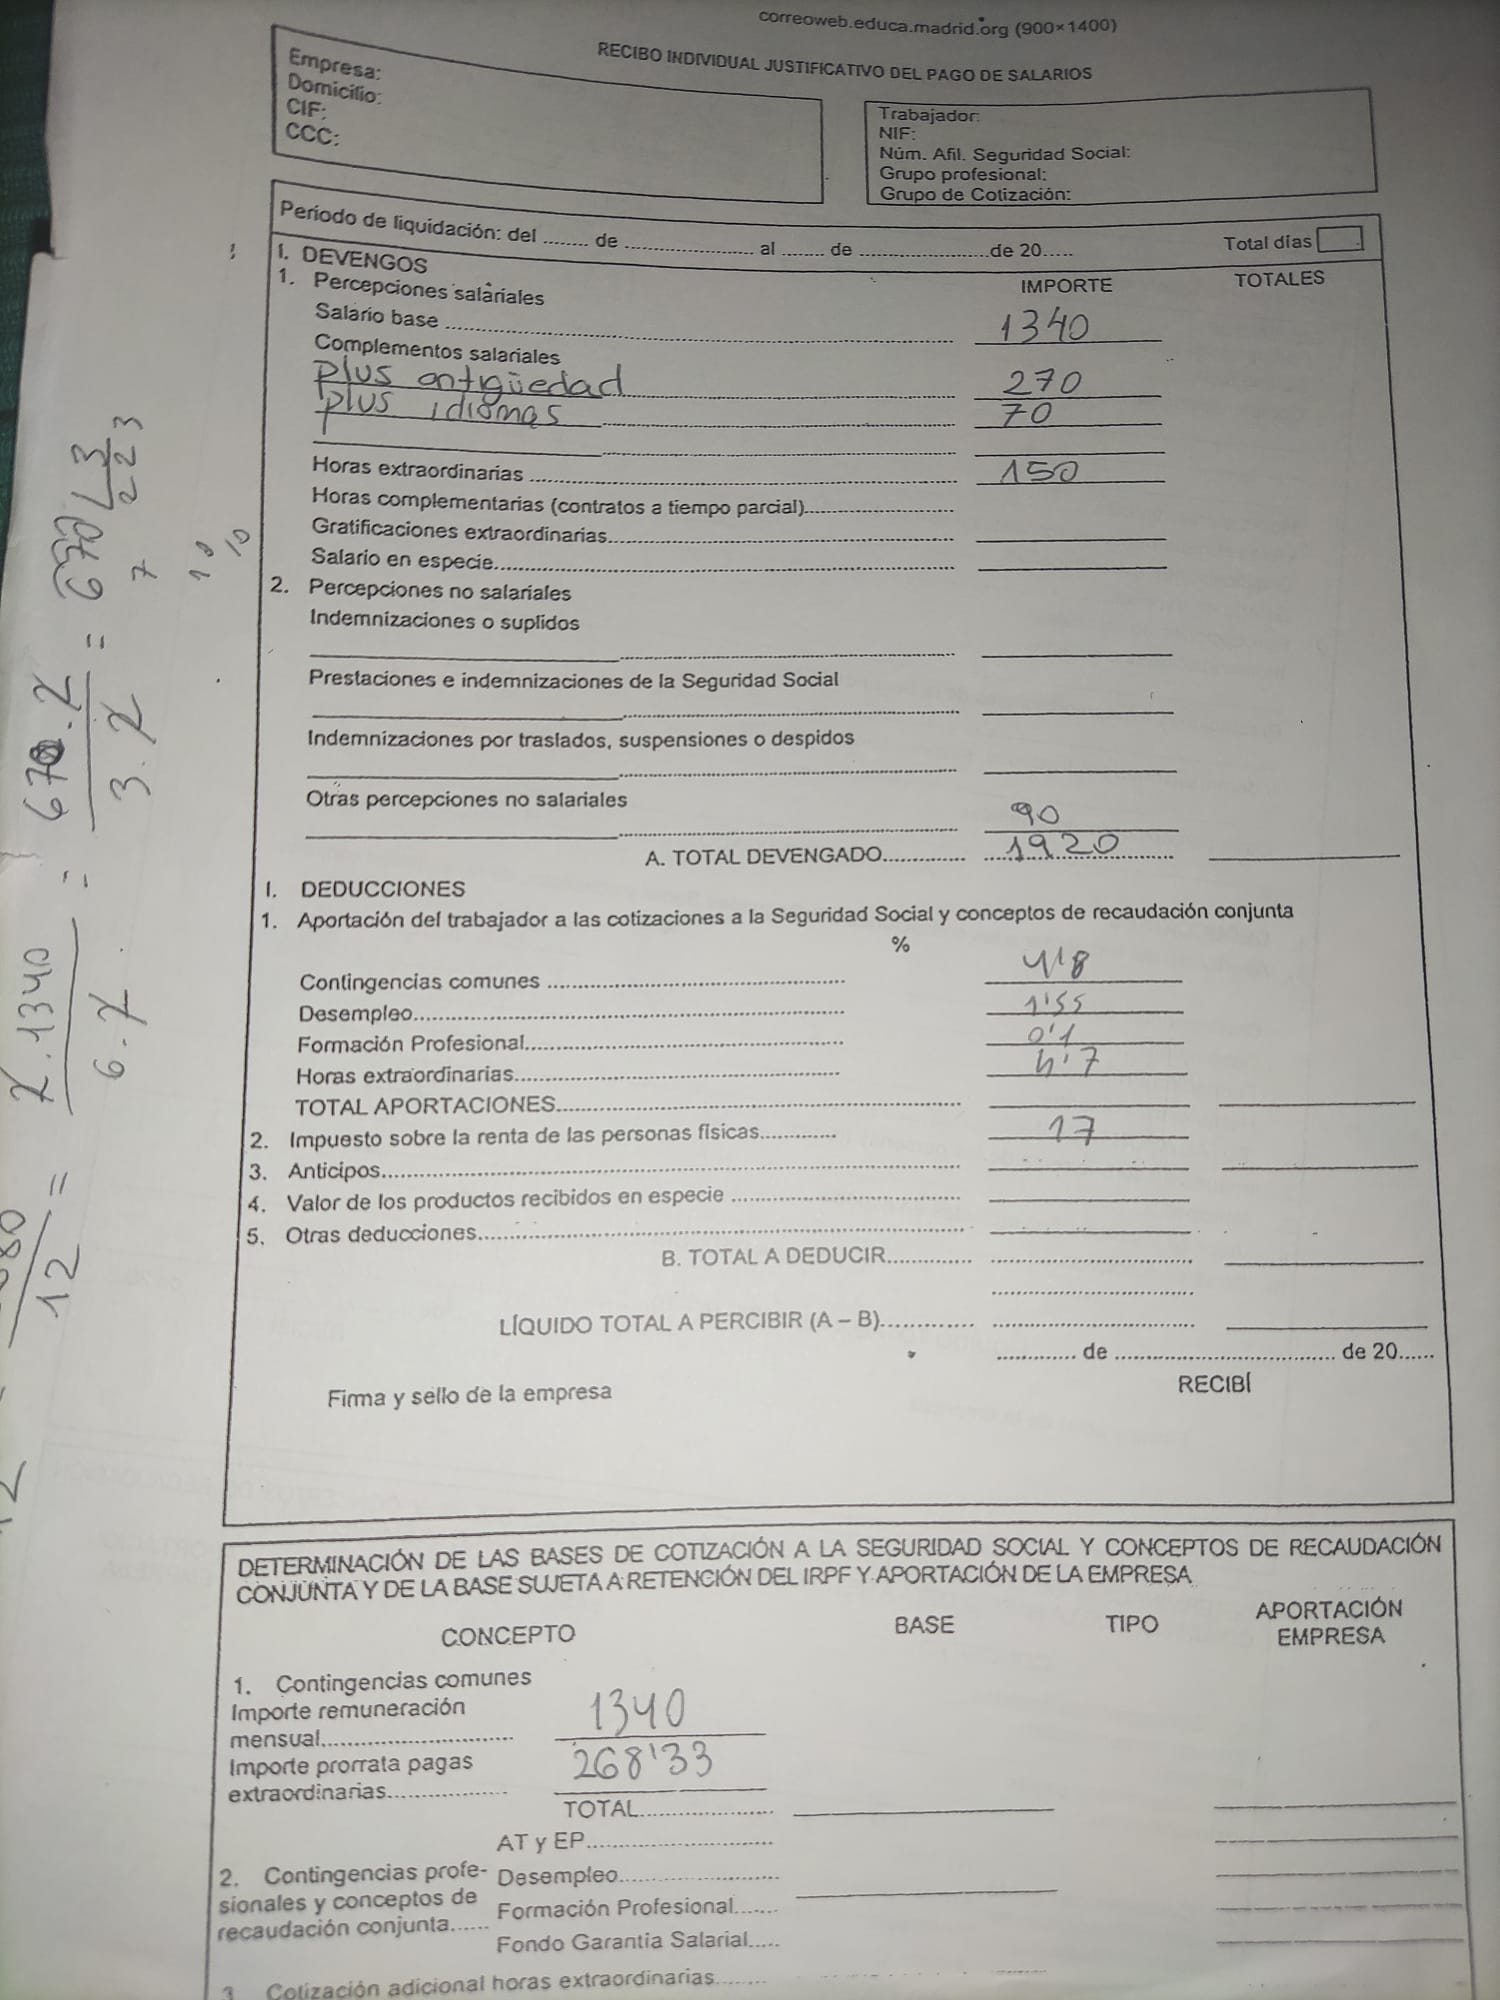 correoweb.educa.madrid.org (900×1400)
RECIBO INDIVIDUAL JUSTIFICATIVO DEL PAGO DE SALARIOS
Empresa:
Domicilio:
CIF:
CCC:
Trabajador:
NIF:
Núm. Afil. Seguridad Social:
Grupo profesional:
Grupo de Cotización:
Período de liquidación: del ........ de ........................ al ........ de ........................ de 20..... Total días
I. DEVENGOS
1. Percepciones salariales IMPORTE TOTALES
Salario base 1340
Complementos salariales
plus antigüedad 270
plus idiomas 70
Horas extraordinarias 150
Horas complementarias (contratos a tiempo parcial)
Gratificaciones extraordinarias
Salario en especie
2. Percepciones no salariales
Indemnizaciones o suplidos
Prestaciones e indemnizaciones de la Seguridad Social
Indemnizaciones por traslados, suspensiones o despidos
Otras percepciones no salariales
90
A. TOTAL DEVENGADO 1920
I. DEDUCCIONES
1. Aportación del trabajador a las cotizaciones a la Seguridad Social y conceptos de recaudación conjunta
%
Contingencias comunes
Desempleo 1'55
Formación Profesional 0'1
Horas extraordinarias 4'7
TOTAL APORTACIONES
2. Impuesto sobre la renta de las personas físicas 17
3. Anticipos
4. Valor de los productos recibidos en especie
5. Otras deducciones
B. TOTAL A DEDUCIR
LÍQUIDO TOTAL A PERCIBIR (A – B)
............. de .................................... de 20......
Firma y sello de la empresa RECIBÍ
DETERMINACIÓN DE LAS BASES DE COTIZACIÓN A LA SEGURIDAD SOCIAL Y CONCEPTOS DE RECAUDACIÓN
CONJUNTA Y DE LA BASE SUJETA A RETENCIÓN DEL IRPF Y APORTACIÓN DE LA EMPRESA
CONCEPTO BASE TIPO APORTACIÓN
EMPRESA
1. Contingencias comunes
Importe remuneración
mensual 1340
Importe prorrata pagas
extraordinarias 268'33
TOTAL
AT y EP
2. Contingencias profe- Desempleo
sionales y conceptos de Formación Profesional
recaudación conjunta
Fondo Garantia Salarial
3 Cotización adicional horas extraordinarias